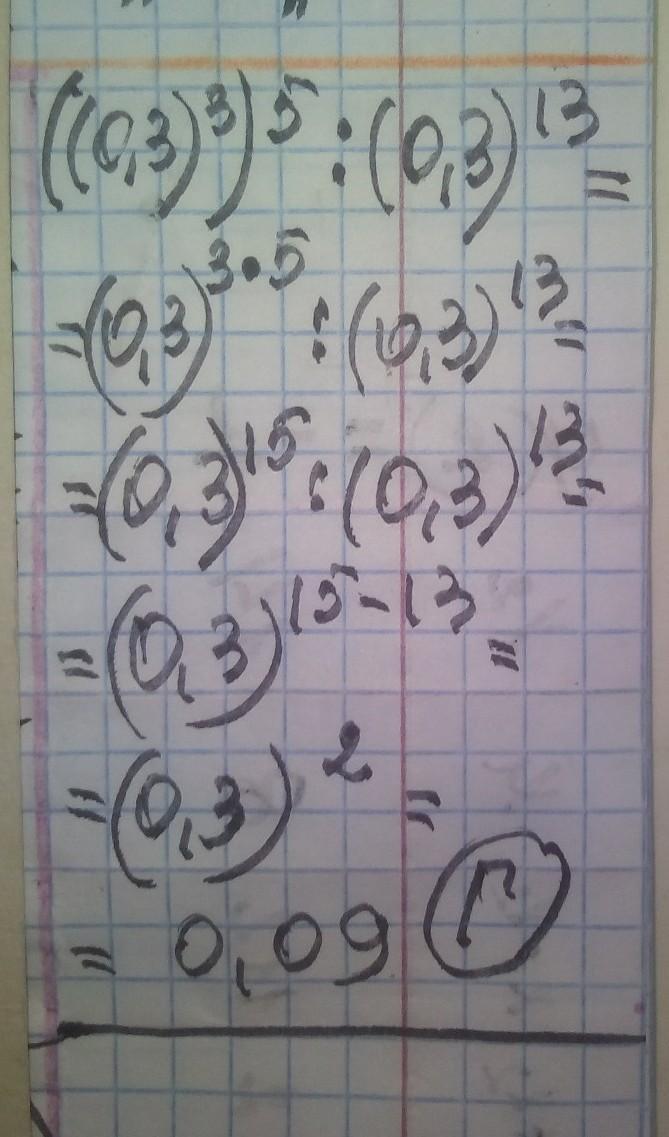 ((0,3)³)⁵ : (0,3)¹³ =
= (0,3)³·⁵ : (0,3)¹³ =
= (0,3)¹⁵ : (0,3)¹³ =
= (0,3)¹⁵⁻¹³ =
= (0,3)² =
= 0,09 Г